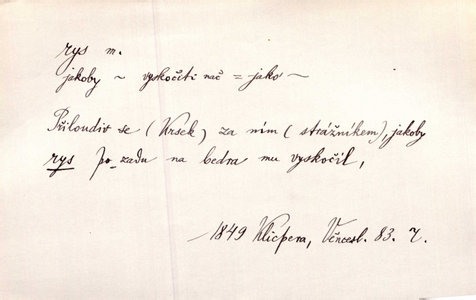 rys m.
jakoby ~ vyskočiti nač = jako ~
Přiloudiv se (Krsek) za ním (strážníkem), jakoby
rys po_zadu na bedra mu vyskočil,
—1849 Klicpera, Věncesl. 83. 7.